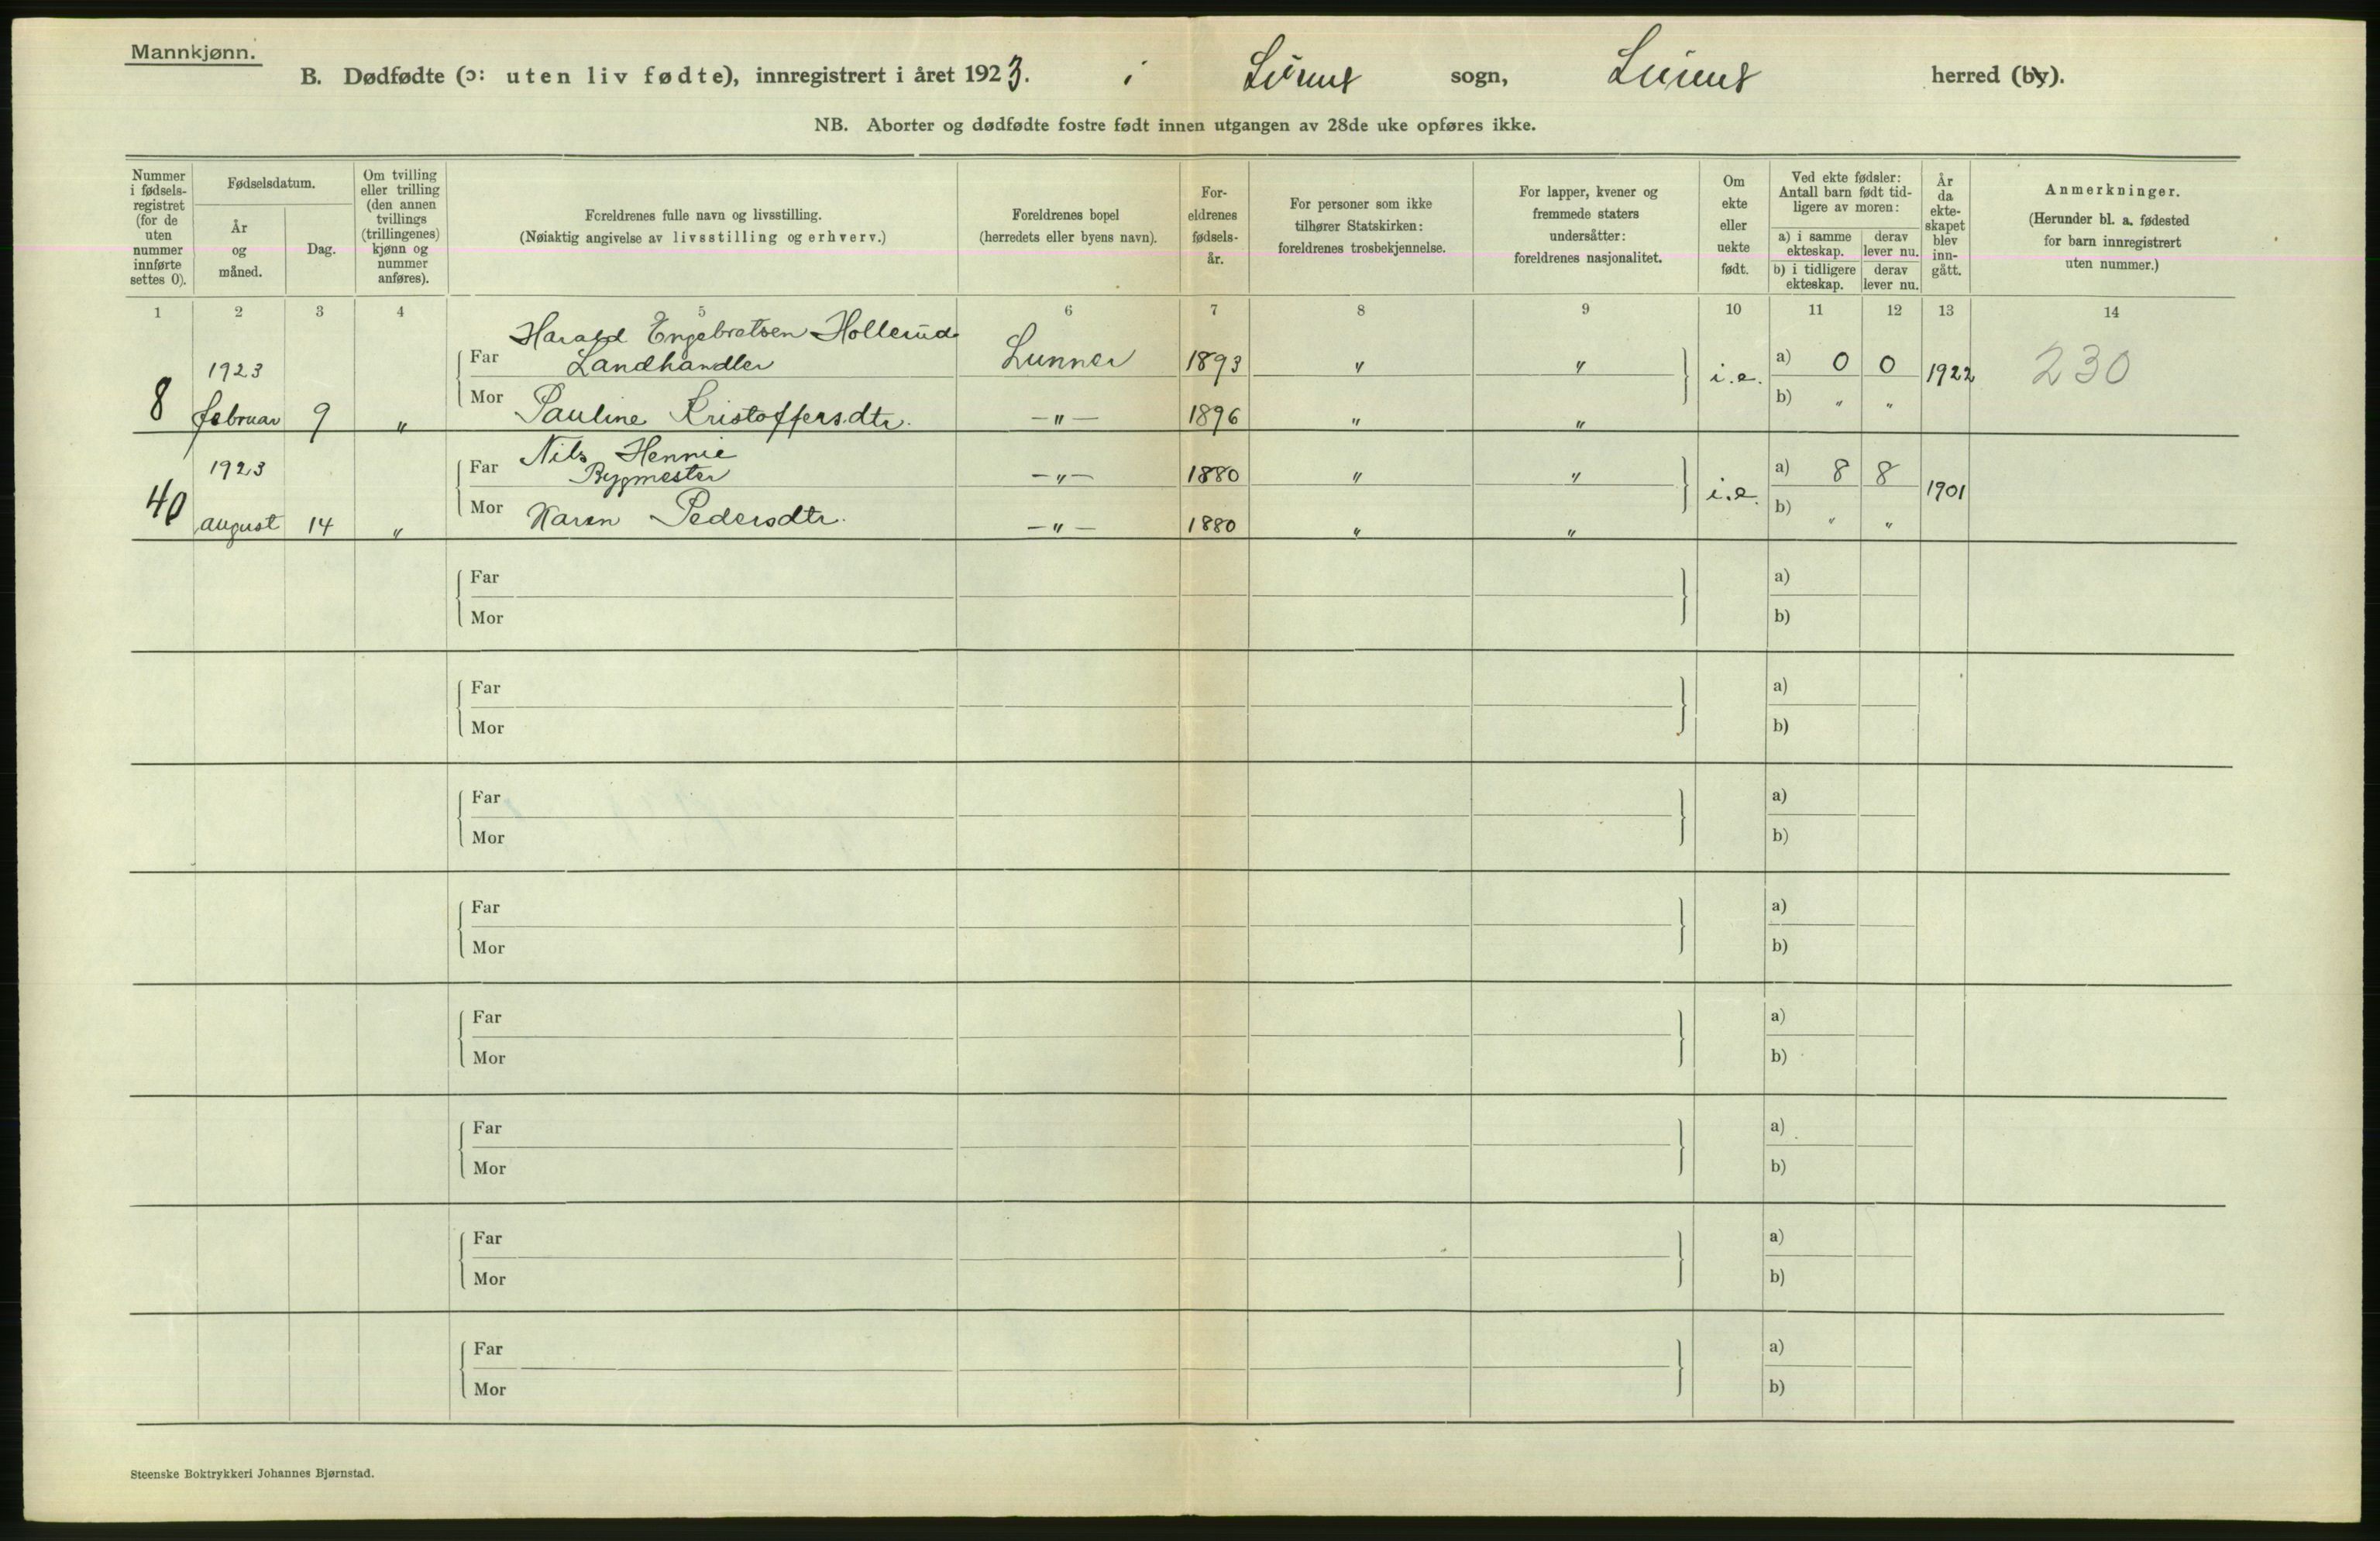 Mannkjønn.
B. Dødfødte (ɔ: uten liv fødte), innregistrert i året 1923. i Lunner sogn, Lunner herred (by).
NB. Aborter og dødfødte fostre født innen utgangen av 28de uke opføres ikke.
Nummer i fødselsregistret (for de uten nummer innførte settes 0).
Fødselsdatum.
År og måned.
Dag.
Om tvilling eller trilling (den annen tvillings (trillingenes) kjønn og nummer anføres).
Foreldrenes fulle navn og livsstilling.
(Nøiaktig angivelse av livsstilling og erhverv.)
Foreldrenes bopel
(herredets eller byens navn).
Foreldrenes fødselsår.
For personer som ikke tilhører Statskirken: foreldrenes trosbekjennelse.
For lapper, kvener og fremmede staters undersåtter: foreldrenes nasjonalitet.
Om ekte eller uekte født.
Ved ekte fødsler: Antall barn født tidligere av moren:
a) i samme ekteskap. derav lever nu.
b) i tidligere ekteskap. derav lever nu.
År da ekteskapet blev inngått.
Anmerkninger.
(Herunder bl. a. fødested for barn innregistrert uten nummer.)
1 2 3 4 5 6 7 8 9 10 11 12 13 14
Harald Engebretsen Hollerud
8 1923 februar 9 " Far Landhandler Lunner 1893 " " i.e. a) 0 0 1922 230
Mor Pauline Kristoffersdtr. —"— 1896 " " b) " "
Nils Hennie
40 1923 august 14 " Far Bygmester —"— 1880 " " i.e. a) 8 8 1901
Mor Karen Pedersdtr. —"— 1880 " " b) " "
Far a)
Mor b)
Far a)
Mor b)
Far a)
Mor b)
Far a)
Mor b)
Far a)
Mor b)
Far a)
Mor b)
Far a)
Mor b)
Far a)
Mor b)
Steenske Boktrykkeri Johannes Bjørnstad.